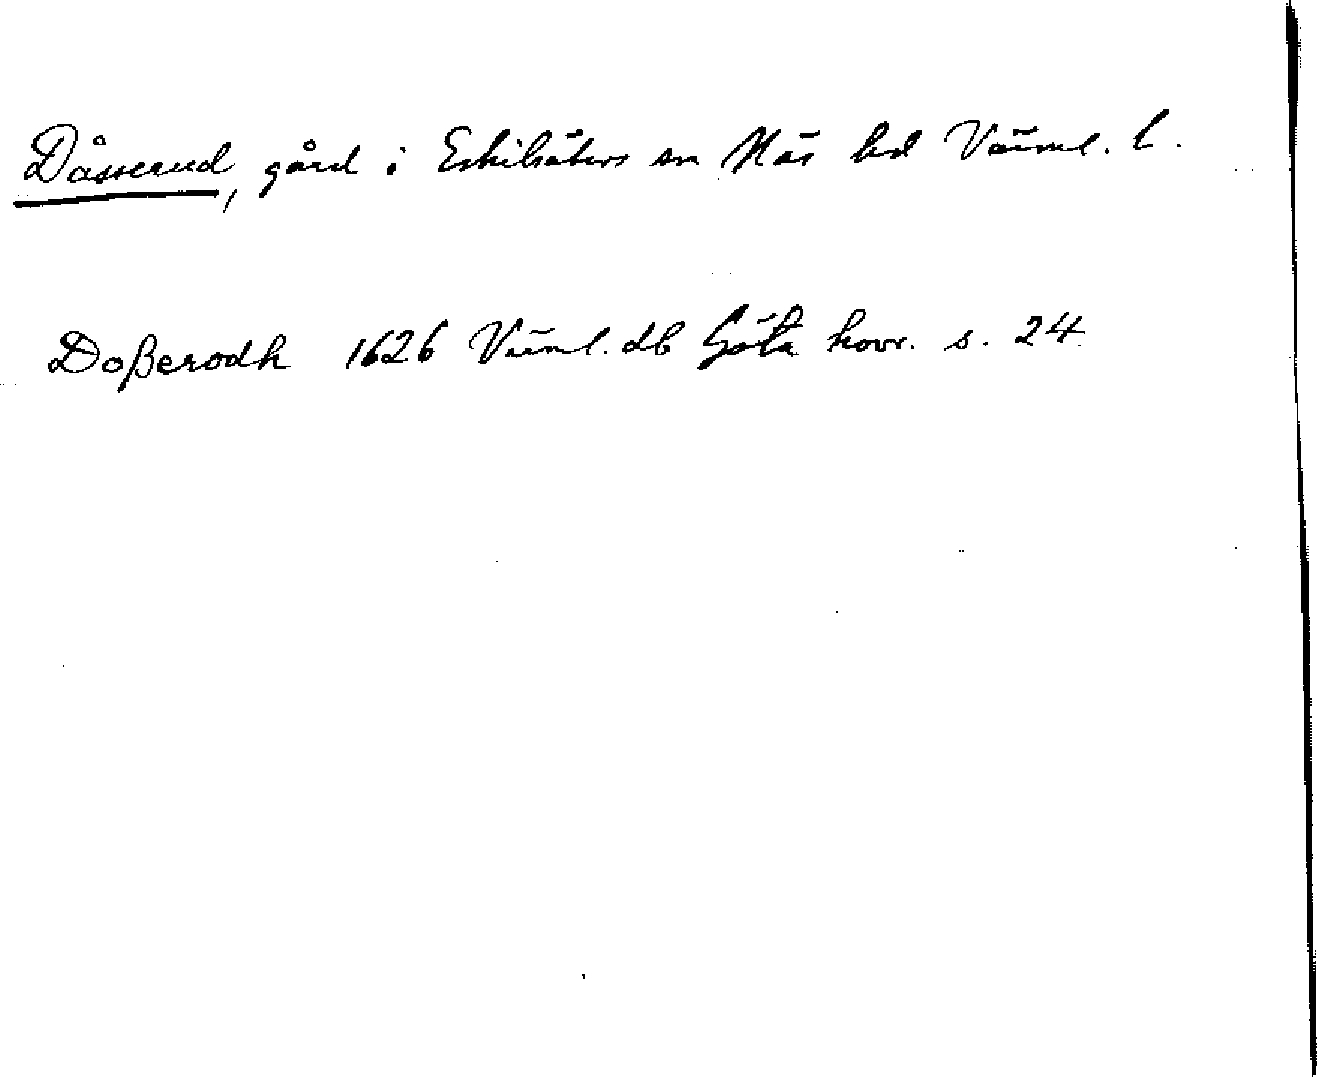 Dåsserud, gård i Eskilsäters sn Näs hd Värml. l.
Doßerodh 1626 Värml. db Göta hovr. s. 24